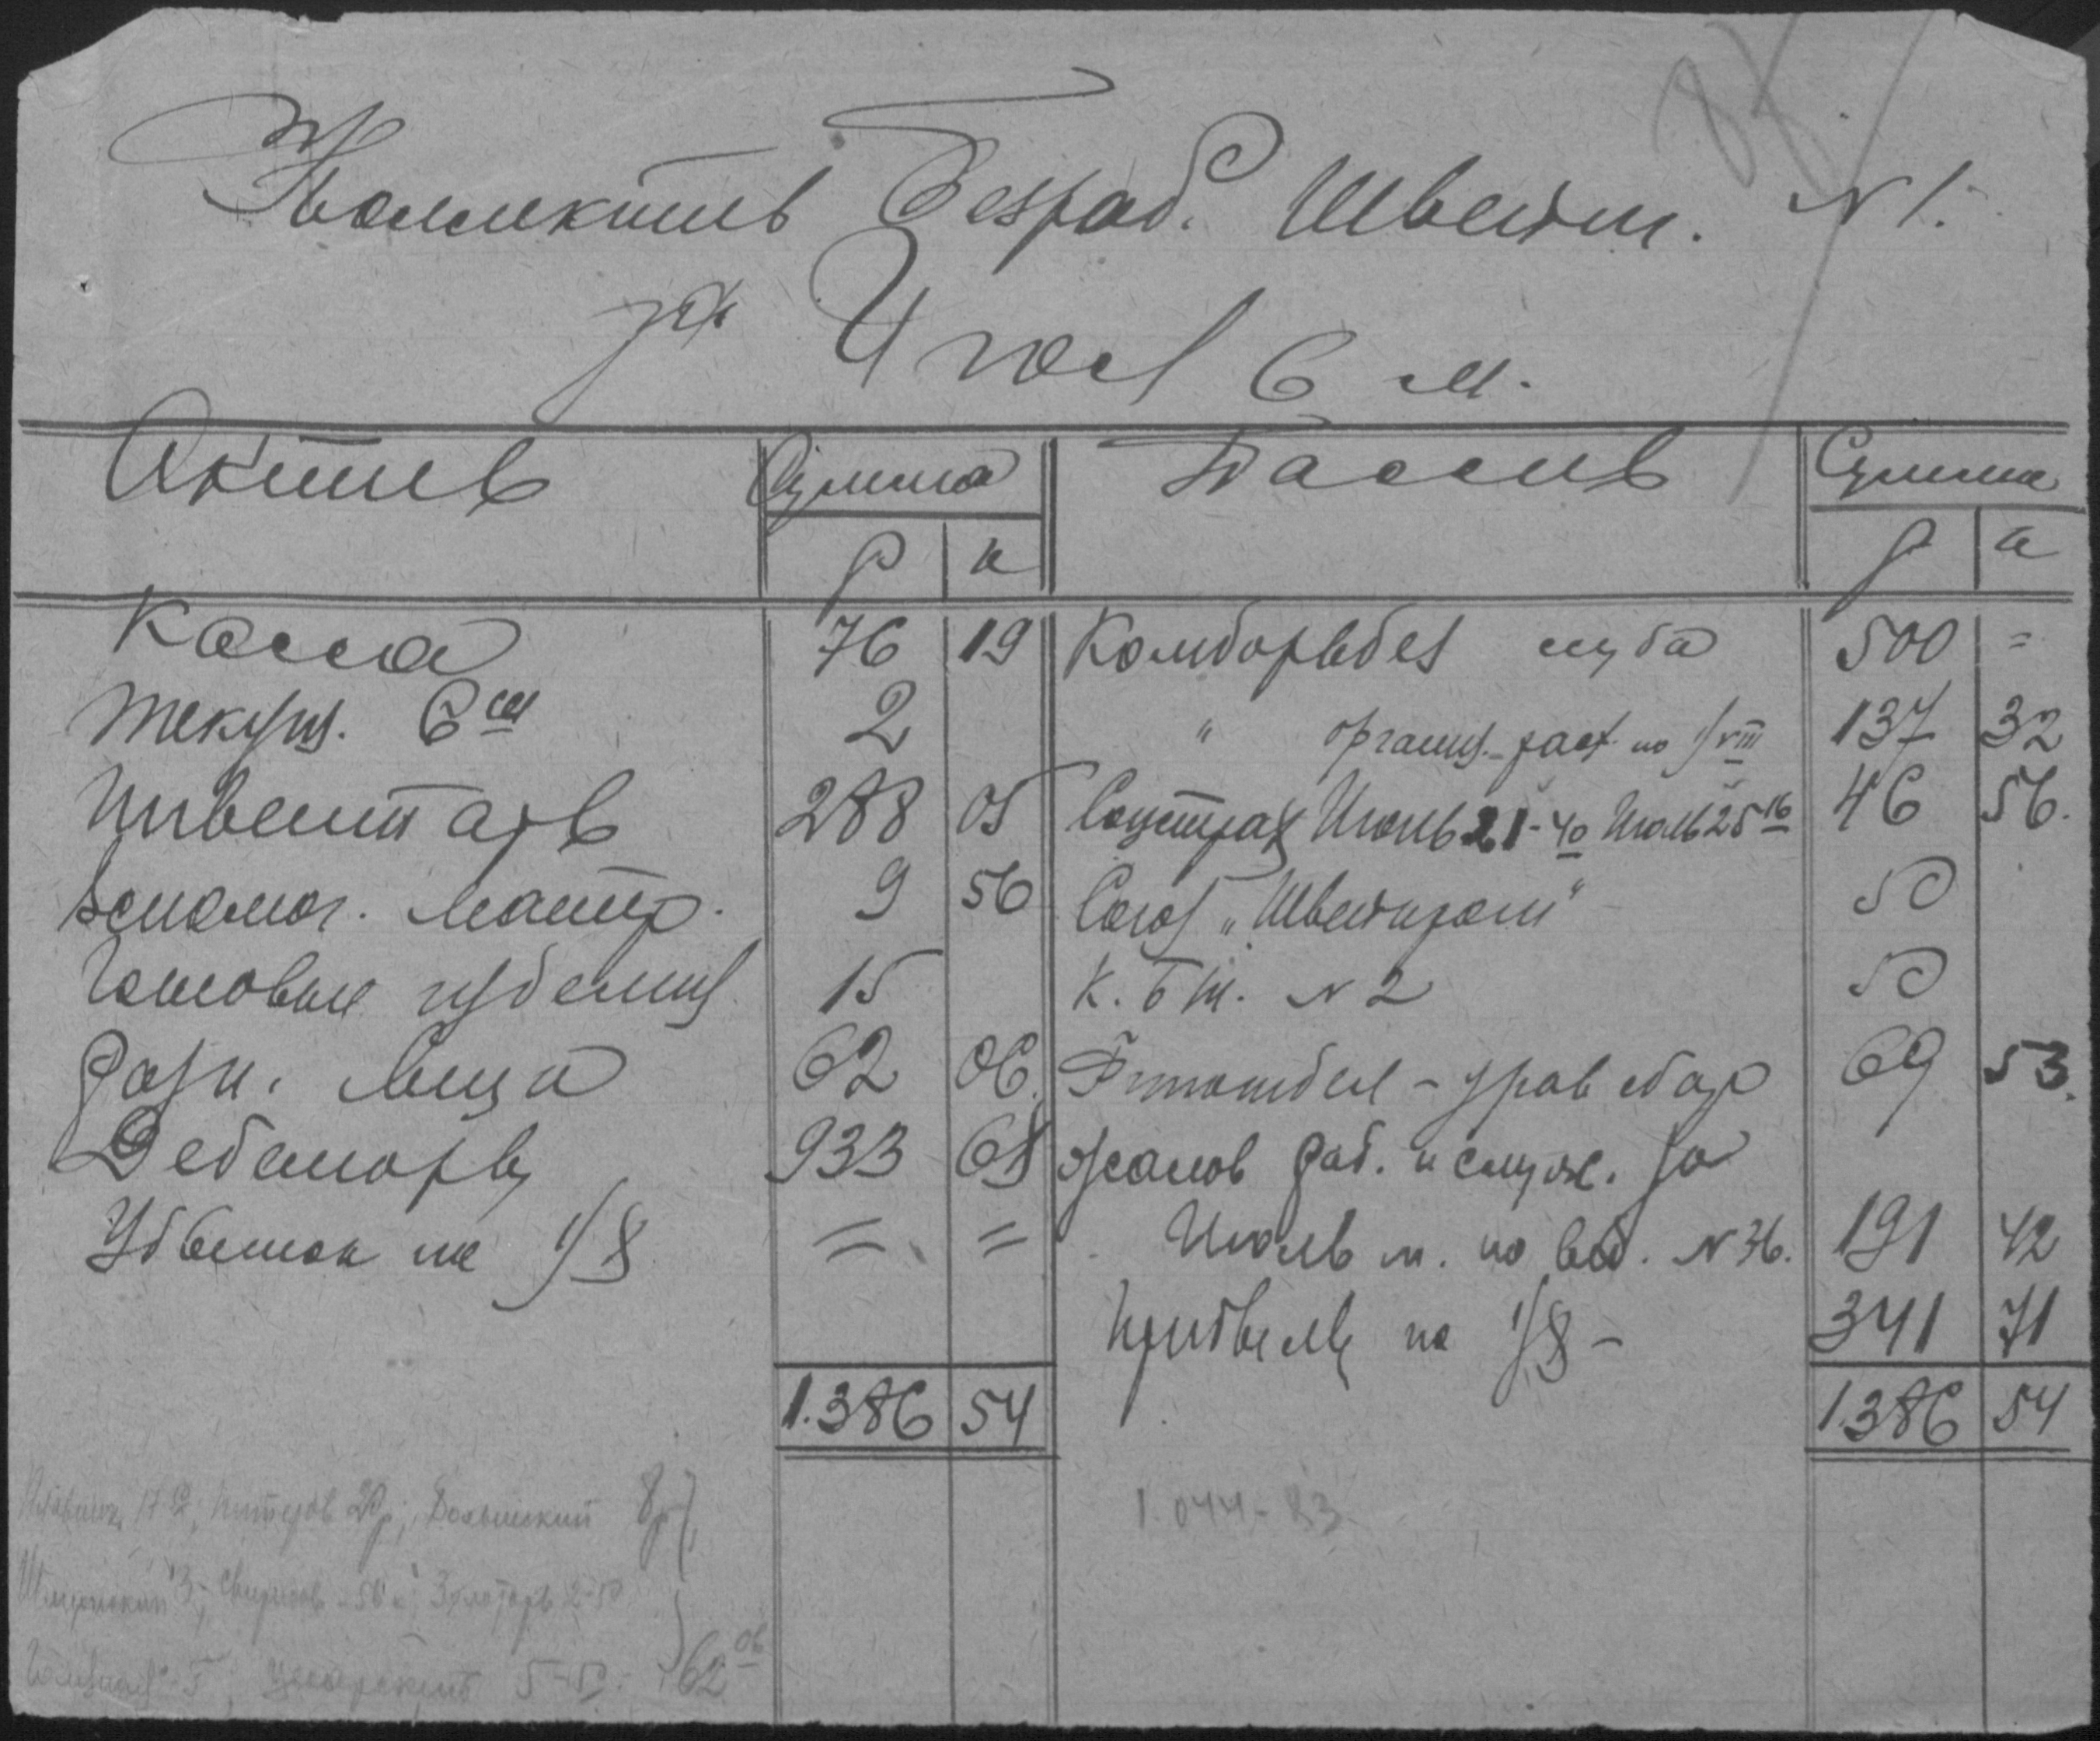 Коллектив Безраб. Швейн. N 1.
за Июль с м.
Актив Сумма Пассив Сумма
р к р к
Касса 76 19 Комборьбез ссуда 500 =
Текущ. Сч 2 " организ. расх. на 1/VIII 137 32
Инвентарь 288 05 Соцстрах Июнь 21-40 Июль 25 16 46 56.
Вспомог. матер. 9 56 Союз „Швейпром" 50
Готовые изделия 15 К. Б Ш. N 2 50
Разн. лица 62 06. Финотдел - урав сбор 69 53.
Дебеторы 933 68 жалов раб. и служ. за
Убыток на 1/8 = = Июль м. по вед. N 36. 191 42
Прибыль на 1/8 - 341 71
1.386 54 1386 54
17 Питеров 20р; 8р
1.044-83
3-, 50 к; 2-50
5-50. 62 06